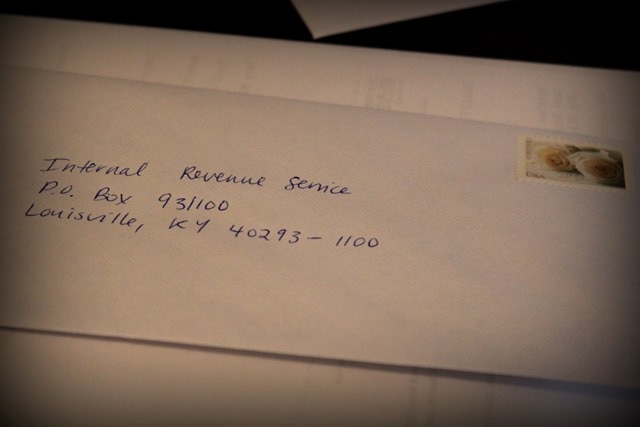 Internal Revenue Service
P.O. Box 931100
Louisville, KY 40293-1100
USA